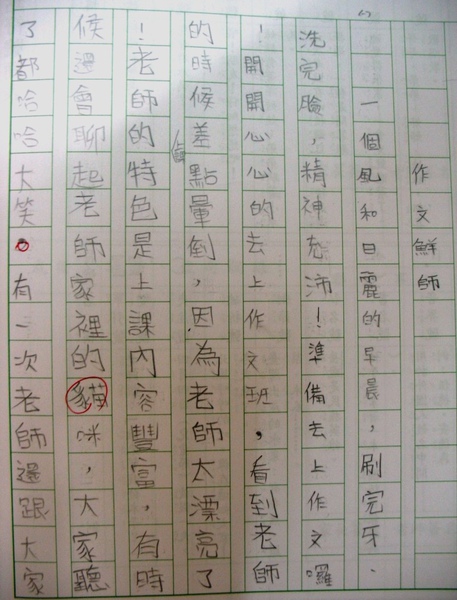 作文鮮師
一個風和日麗的早晨，刷完牙、
洗完臉，精神充沛！準備去上作文囉
！開開心心的去上作文班，看到老師
的時候差點暈倒，因為老師太漂亮了
！老師的特色是上課內容豐富，有時
候還會聊起老師家裡的貓咪，大家聽
了都哈哈大笑。有一次老師還跟大家